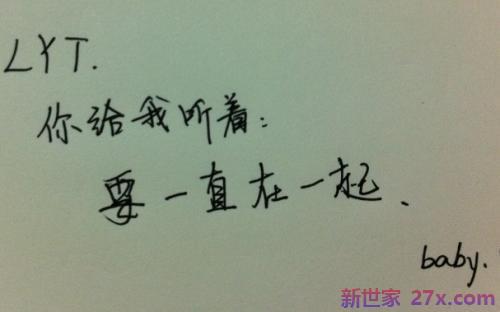 LYT.
你给我听着：
要一直在一起、
baby.
新世家 27x.com